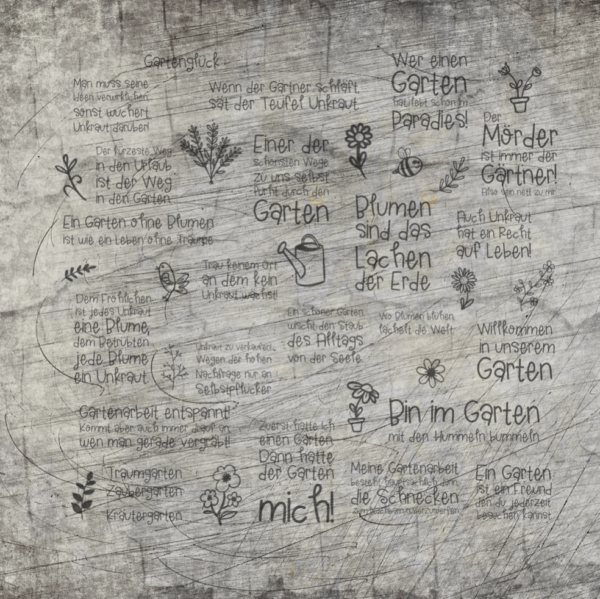 Gartenglück
Man muss seine
Ideen verwirklichen
sonst wuchert
Unkraut darüber!
Wenn der Gärtner schläft
sät der Teufel Unkraut
Wer einen
Garten
hat lebt schon im
Paradies!
Der
Mörder
ist immer der
Gärtner!
Also sein nett zu mir
Der kürzeste Weg
in den Urlaub
ist der Weg
in den Garten
Einer der
schönsten Wege
zu uns selbst
führt durch den
Garten
Ein Garten ohne Blumen
ist wie ein Leben ohne Träume
Blumen
sind das
Lachen
der Erde
Auch Unkraut
hat ein Recht
auf Leben!
Trau keinem Ort
an dem kein
Unkraut wächst!
Dem Fröhlichen
ist jedes Unkraut
eine Blume,
dem Betrübten
jede Blume
ein Unkraut
Unkraut zu verkaufen!
Wegen der hohen
Nachfrage nur an
Selbstpflücker
Ein schöner Garten
wischt den Staub
des Alltags
von der Seele
Wo Blumen blühen
lächelt die Welt
Willkommen
in unserem
Garten
Gartenarbeit entspannt!
Kommt aber auch immer drauf an
wen man gerade vergräbt!
Bin im Garten
mit den Hummeln bummeln
Zuerst hatte ich
einen Garten
Dann hatte
der Garten
mich!
Traumgarten
Zaubergarten
Kräutergarten
Meine Gartenarbeit
besteht
die Schnecken
Ein Garten
ist ein Freund
den du jederzeit
besuchen kannst